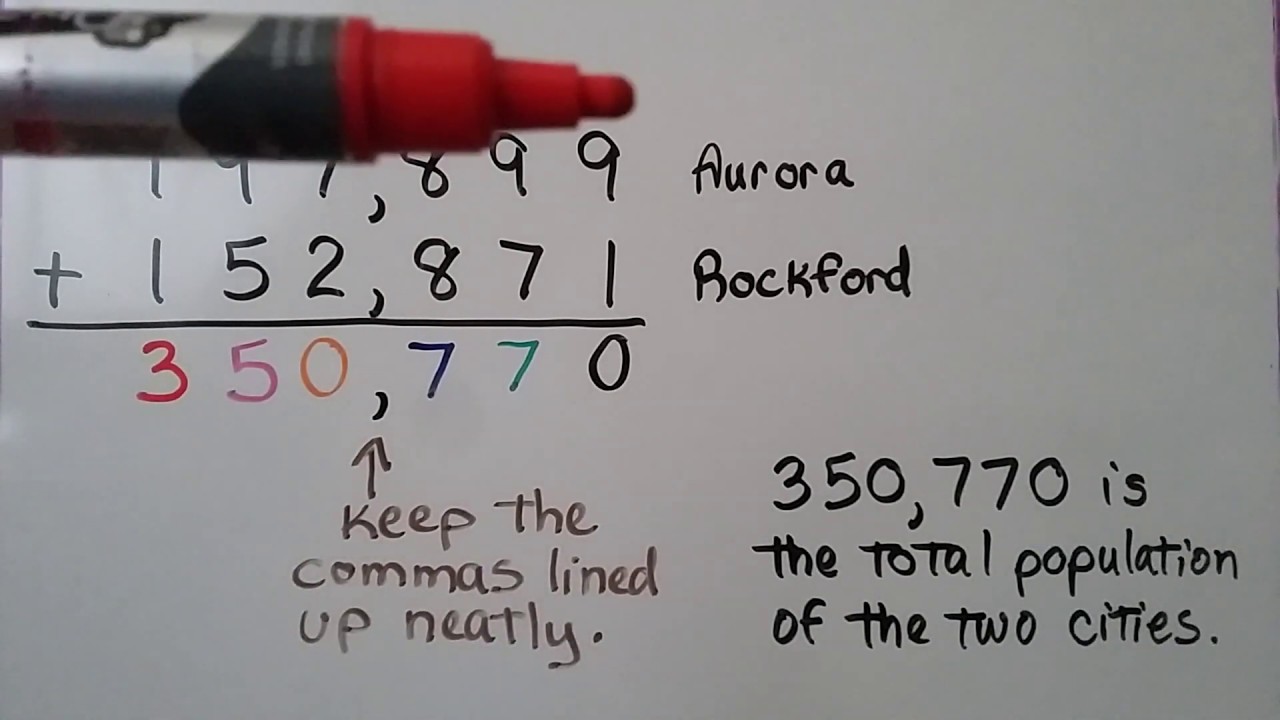 197,899 Aurora
+ 152,871 Rockford
350,770
↑
Keep the
commas lined
up neatly.
350,770 is
the total population
of the two cities.